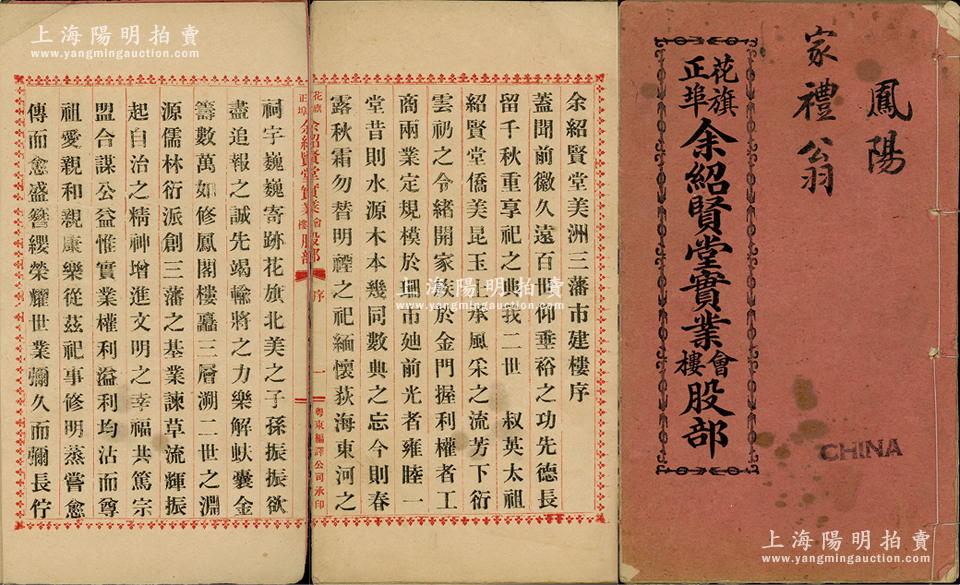 鳳陽
家禮翁
花旗
正埠
余紹賢堂實業會樓股部
CHINA
余紹賢堂美洲三藩市建樓序
蓋聞前徽久遠百世仰垂裕之功先德長
留千秋重享祀之典我二世 叔英太祖
紹賢堂僑美昆玉上承風采之流芳下衍
雲礽之令緒開家族於金門握利權者工
商兩業定規模於珊市廸前光者雍睦一
堂昔則水源木本幾同數典之忘今則春
露秋霜勿替明禋之祀緬懷荻海東河之
花旗正埠余紹賢堂實業會樓股部 序 一 粤東編譯公司承印
祠宇巍巍寄跡花旗北美之子孫振振欲
盡追報之誠先竭輸將之力樂解蚨囊金
籌數萬如修鳳閣樓矗三層溯二世之淵
源儒林衍派創三藩之基業諫草流輝振
起自治之精神增進文明之幸福共篤宗
盟合謀公益惟實業權利溢利均沾而尊
祖愛親和親康樂從茲祀事修明蒸嘗愈
傳而愈盛簪纓榮耀世業彌久而彌長佇
上海陽明拍賣
www.yangmingauction.com
上海陽明拍賣
www.yangmingauction.com
上海陽明拍賣
www.yangmingauction.com